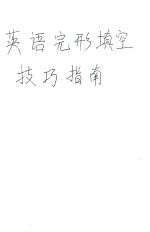 英语完形填空
技巧指南